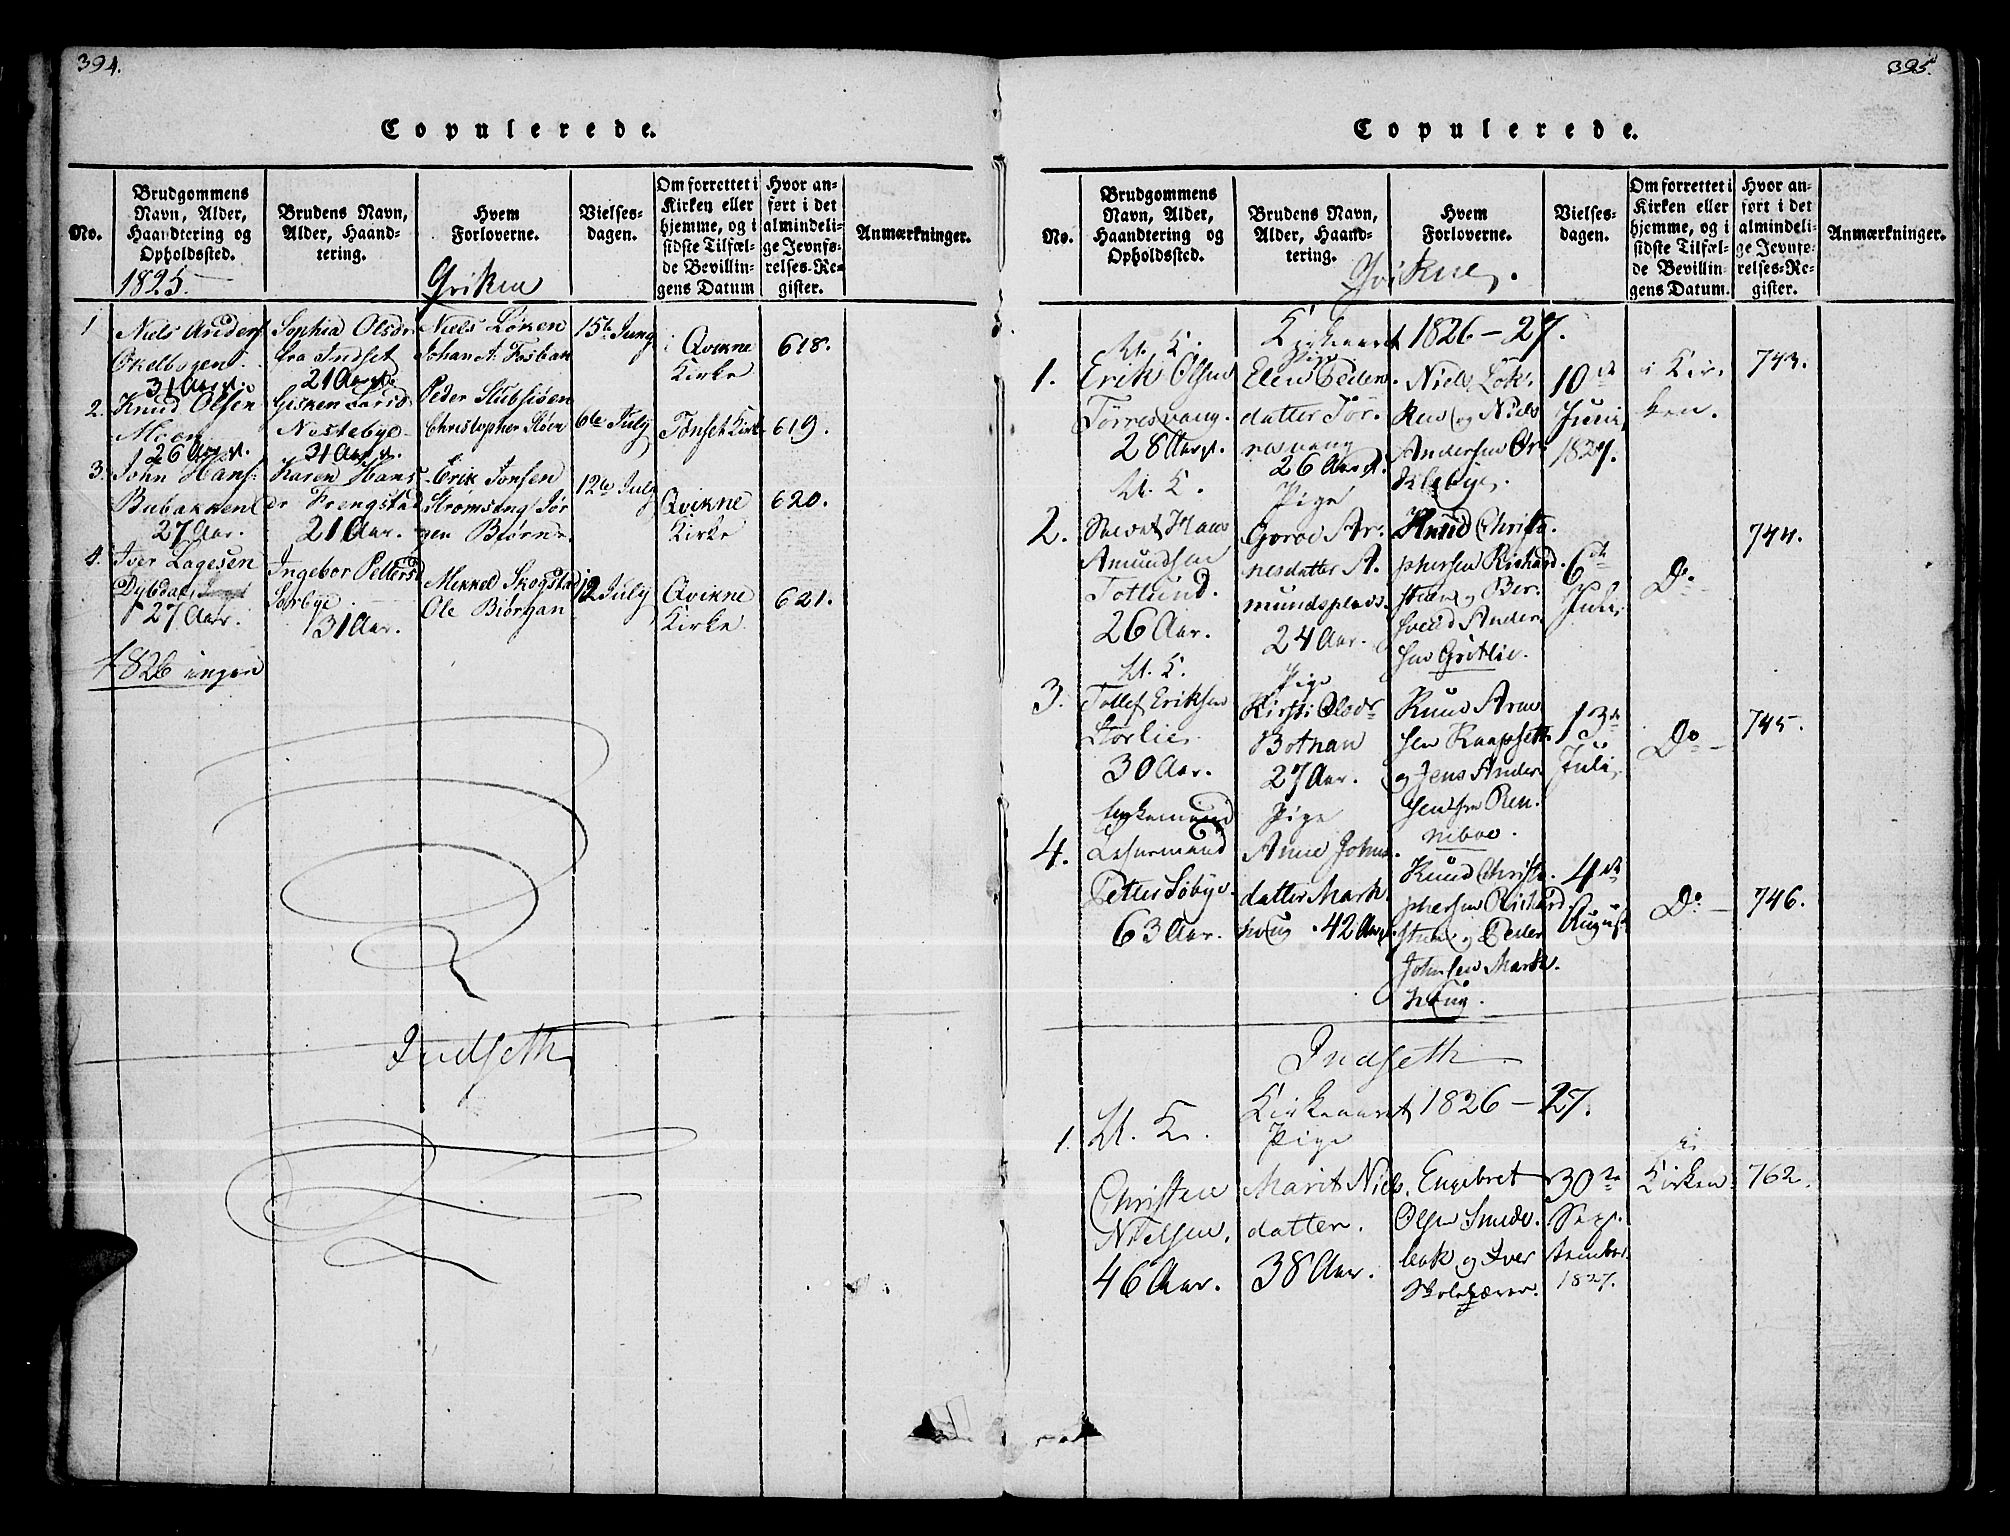 394.
Copulerede.
No.
Brudgommens
Navn, Alder,
Haandtering og
Opholdssted.
Brudens Navn,
Alder, Haand-
tering.
Hvem
Forloverne.
Vielses-
dagen.
Om forrettet i
Kirken eller
hjemme, og i
sidste Tilfæl-
de Bevillin-
gens Datum
Hvor an-
ført i det
almindeli-
ge Jevnfø-
relses-Re-
gister.
Anmærkninger.
1825.
Qvikne
1
Niels Anders
31 Aar
Sophia Olsdr
fra Indset
21 Aar
Niels Løken
Johan A. Fosbak
15de Juny
i Qvikne
Kirke
618.
2.
Knud Olsen
Moen
26 Aar
Nestebye
31 Aar
Peder Stubsiøen
Christopher Røen
6te July
Tønset Kirk
619.
3.
John Hans
Bubakken
27 Aar.
Karen Hans
dr Frengstad
21 Aar.
Erik Jonsen
Strømseng Jør
gen Biørnr.
12te July
Qvikne
Kirke
620.
4.
Iver Lagesen
Dybdal
27 Aar.
Ingebor Petters
Sørbye
31 Aar.
Mikkel Skogstad
Ole Biørgan
12 July
Qvikne
Kirke
621.
1826 ingen
Indseth
395.
Copulerede.
No.
Brudgommens
Navn, Alder,
Haandtering og
Opholdssted.
Brudens Navn,
Alder, Haand-
tering.
Hvem
Forloverne.
Vielses-
dagen.
Om forrettet i
Kirken eller
hjemme, og i
sidste Tilfæl-
de Bevillin-
gens Datum.
Hvor an-
ført i det
almindeli-
ge Jevnfø-
relses-Re-
gister.
Anmærkninger.
Qvikne.
Kirkeaaret 1826-27.
1.
U. K.
Erik Olsen
Tørresvang.
28 Aar
Pige
Elen Peders
datter Tør-
resvang
26 Aar
Niels Løk-
ken og Niels
Andersen Or-
kelbye.
10de
Juni
1827.
i Kir-
ken.
743.
2.
U. K.
Amundsen
Totlund.
26 Aar.
Pige
Goroe Ar-
nesdatter A-
mundsplads.
24 Aar.
Knud Christo-
phersen Richard-
stuen og Ber-
svend Ander-
sen Gritlie.
6te
Juli.
Do
744.
3.
U. K.
Tollef Eriksen
Storlie.
30 Aar.
Pige
Kirsti Olsdr
Botnan
27 Aar.
Knud Arne-
sen Kaapseth
og Jens Ander-
sen fra Ren-
neboe.
13de
Juli.
Do
745.
4.
Enkemand
Petter Søbye.
63 Aar.
Pige
Anne Johns-
datter Mark-
houg 42 Aar
Knud Christo-
phersen Richard-
stuen og Peder
Johnsen Mark-
houg.
4de
August
Do
746.
Indseth
Kirkeaaret 1826-27.
1.
U. K.
Christen
Nielsen.
46 Aar.
Pige
Marit Niels-
datter.
38 Aar.
Engebret
Olsen Smede-
bak og Iver
Skolelærer.
30te
Sep-
tember
1827.
i
Kirken
762.